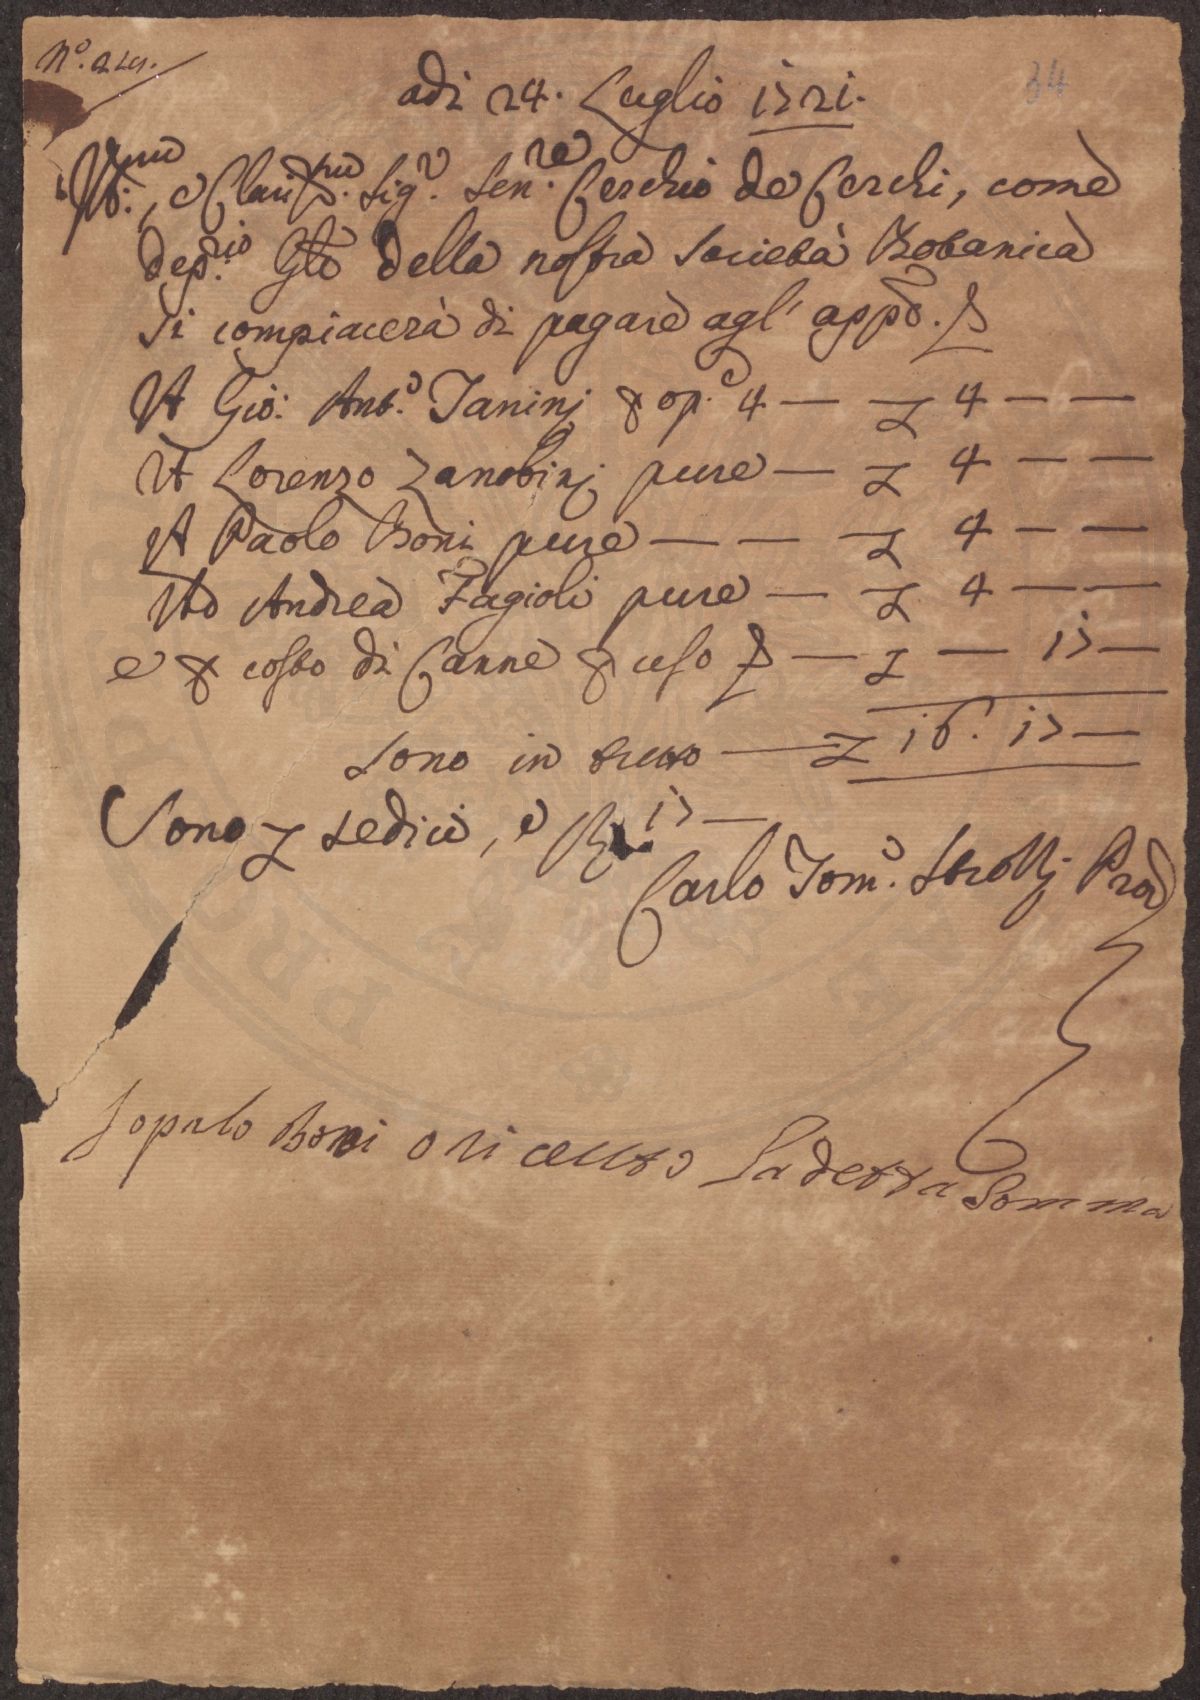 N.° 219.
34
adì 24. Luglio 1721.
Ill:mo, e Clariss.mo Sig.r Sen.re Cerchio de Cerchi, come
dep.rio Gle della nostra Società Botanica
si compiacerà di pagare agl' appo.
A Gio: Ant.o Tanini p op.e 4 — L 4 — —
A Lorenzo Zanobini pure — L 4 — —
A Paolo Boni pure — — L 4 — —
Ad Andrea Fagioli pure — L 4 — —
e p costo di Canne p uso — L — 17 —
sono in tutto — L 16. 17 —
Sono L sedici, e 17 —
Carlo Tom.o Strozzj
Io paulo Boni o riceuto La detta Somma